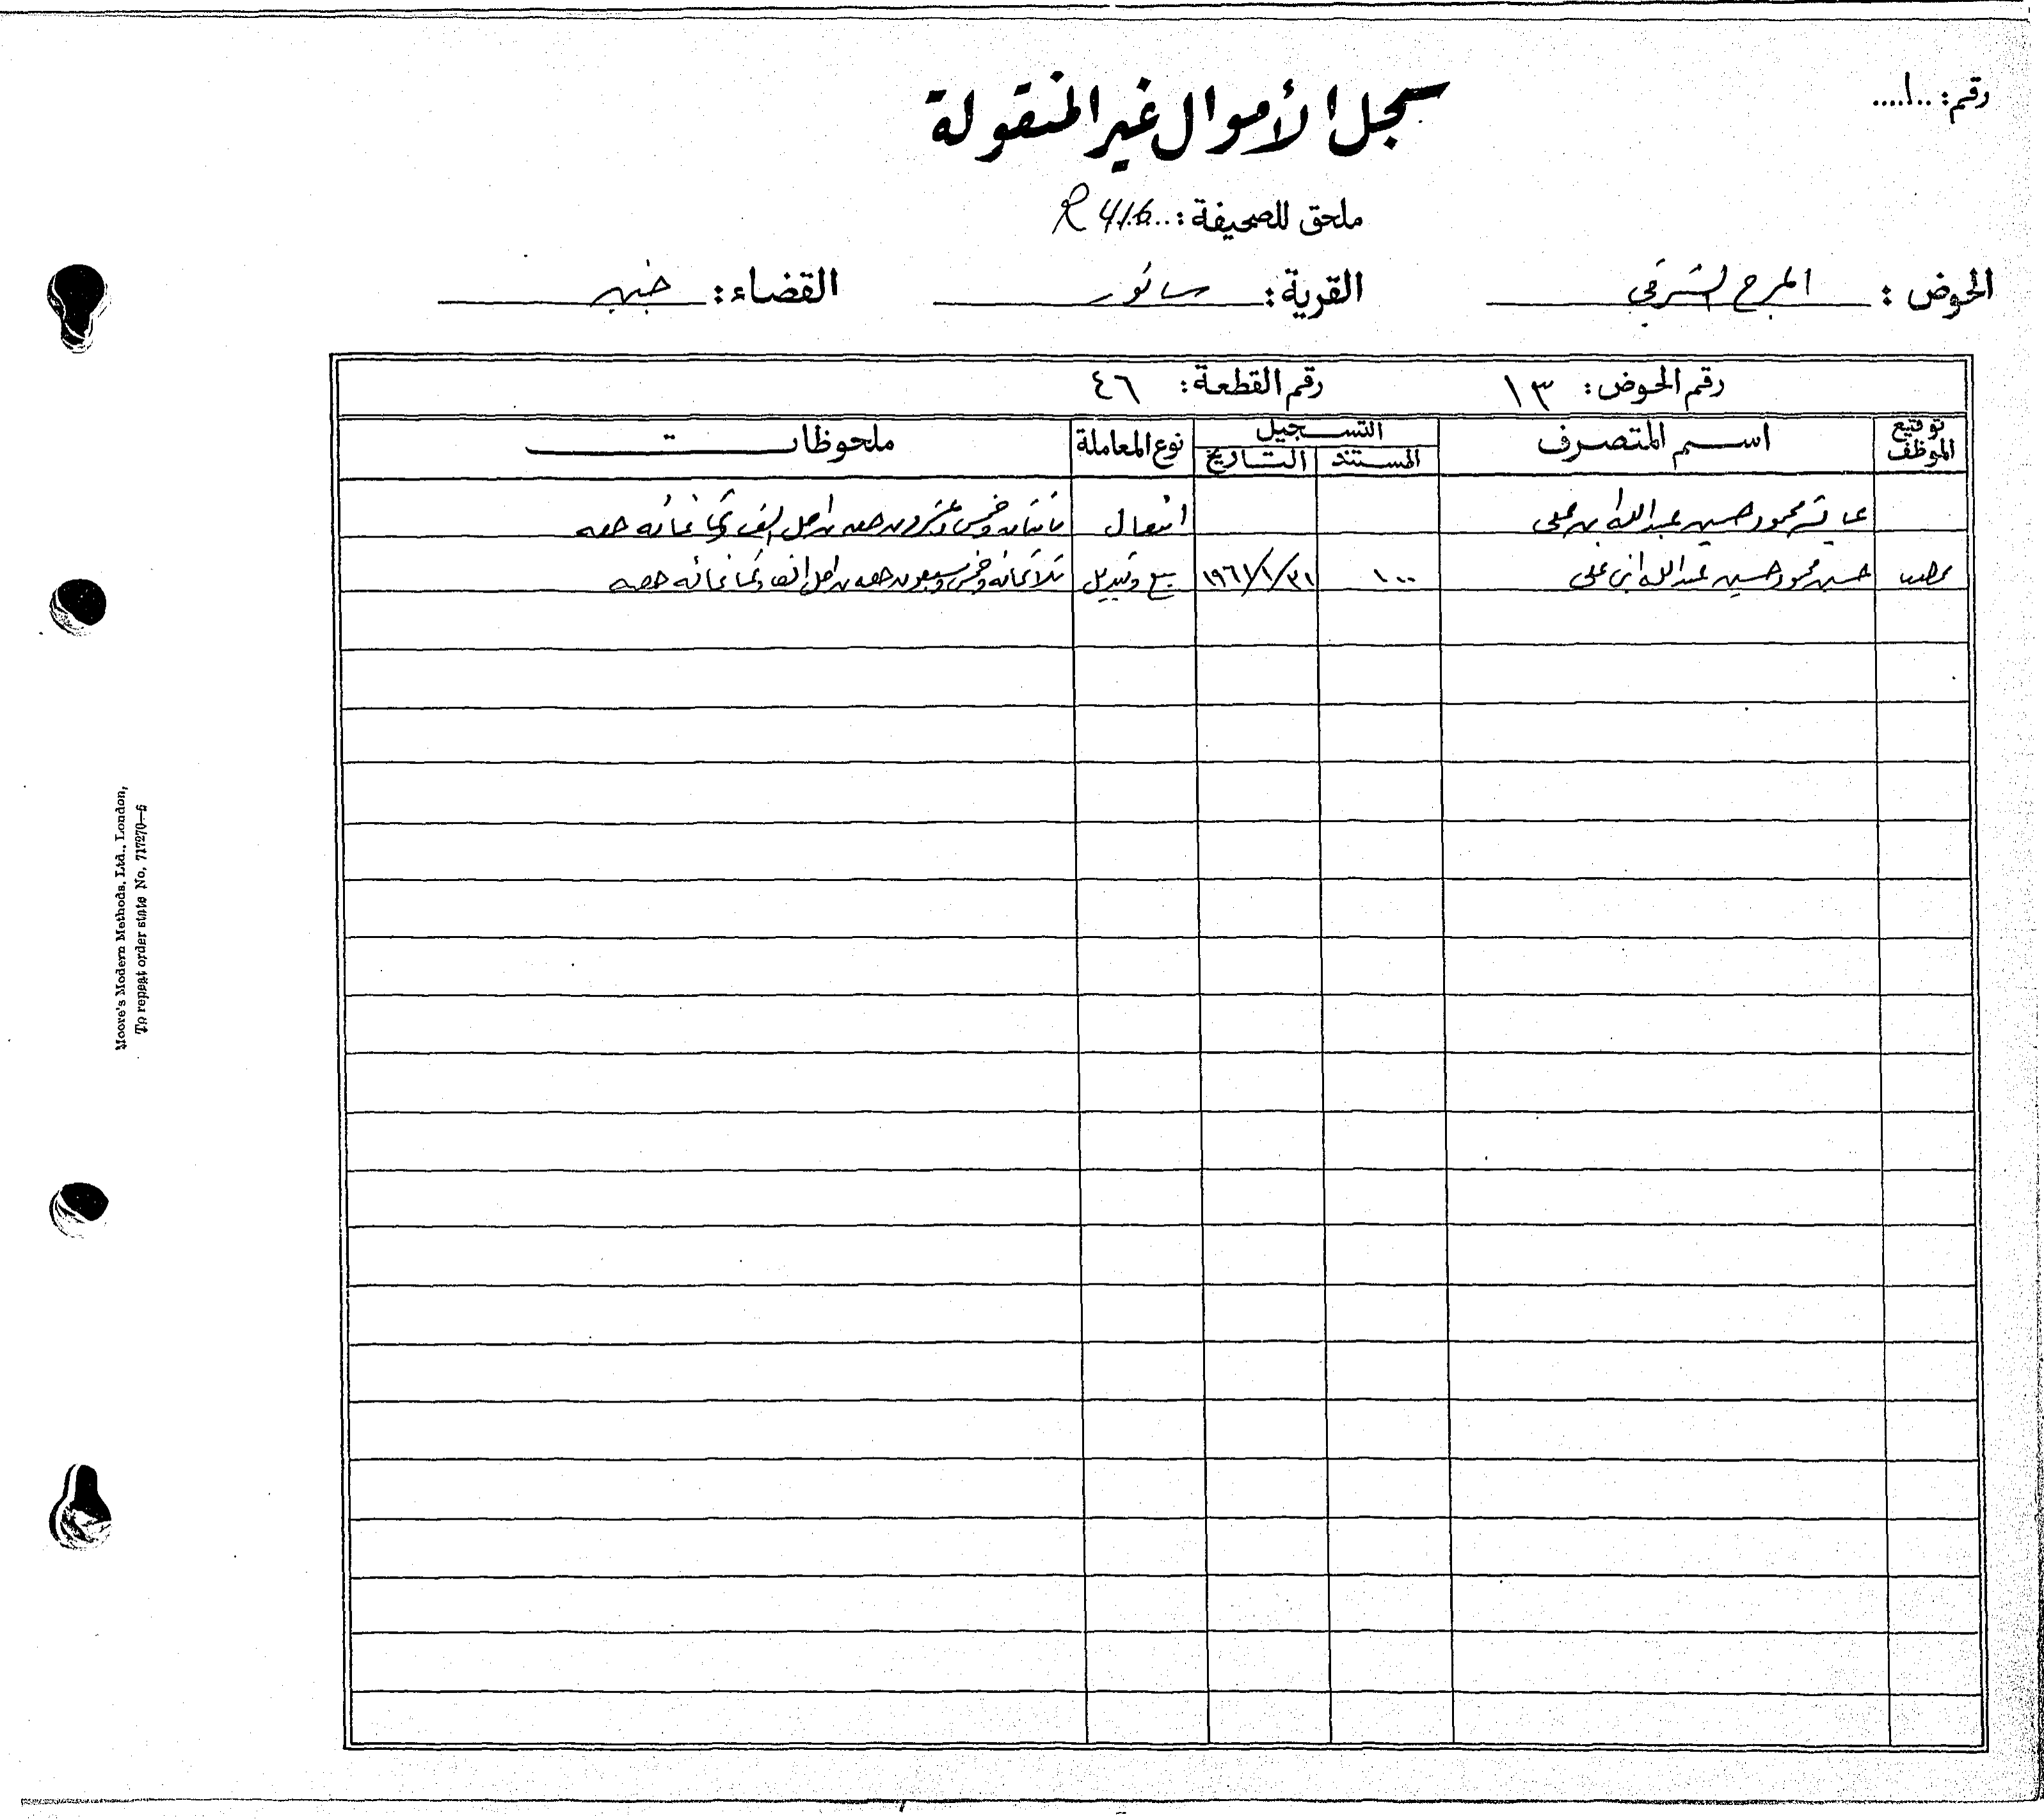 رقم: ..١....
سجل الأموال غير المنقولة
ملحق للصحيفة: R 416
الحوض: المرج الشرقي القرية: سانور القضاء: جنين
رقم الحوض: ١٣ رقم القطعة: ٤٦
توقيع الموظف اسم المتصرف التسجيل نوع المعاملة ملحوظات
المستند التاريخ
محمود حسين عبد الله علي انتقال مائتان وخمس وعشرون حصه من اصل الف وثمانمائه حصه
حسين محمود حسين عبد الله ابن علي ١٠٠ ١٩٦١/١/٣١ بيع وتبديل ثلاثمائه وخمس وسبعون حصه من اصل الف وثمانمائه حصه
Moore's Modern Methods, Ltd., London,
To repeat order state No. 717270—5